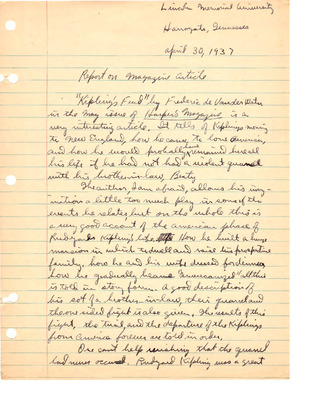 Lincoln Memorial University
Harrogate, Tennessee
April 30, 1937
Report on Magazine Article
"Kipling's Feud" by Frederic de Van der Water
in the May issue of Harper's Magazine is a
very interesting article. It tells of Kiplings moving
to New England, how he came to love America,
and how he would probably have remained here all
his life if he had not had a violent quarrel
with his brother-in-law, Beaty.
The author, I am afraid, allows his imag-
ination a little too much play in some of the
events he relates, but on the whole this is
a very good account of the American phase of
Rudyard Kipling's life. How he built a huge
mansion in which to dwell and raise his prospective
family, how he and his wife dressed for dinner,
how he gradually became Americanized all this
is told in story form. A good description of
his sot of a brother-in-law, their quarrel and
the one sided fight is also given. The results of this
fight, the trial, and the departure of the Kiplings
from America forever are told in order.
One can't help wishing that the quarrel
had never occured. Rudyard Kipling was a great